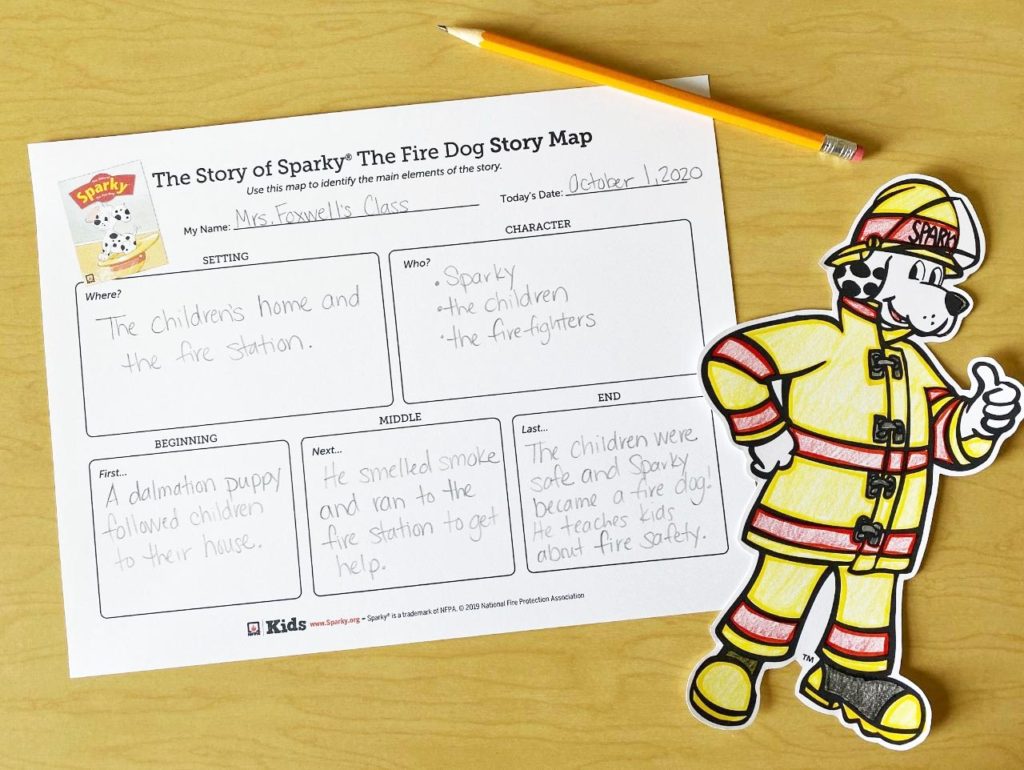 The Story of Sparky® The Fire Dog Story Map
Use this map to identify the main elements of the story.
Sparky
My Name: Mrs. Foxwell's Class
Today's Date: October 1, 2020
SETTING
Where?
The children's home and
the fire station.
CHARACTER
Who?
• Sparky
• the children
• the firefighters
BEGINNING
First...
A dalmation puppy
followed children
to their house.
MIDDLE
Next...
He smelled smoke
and ran to the
fire station to get
help.
END
Last...
The children were
safe and Sparky
became a fire dog!
He teaches kids
about fire safety.
Kids www.Sparky.org – Sparky® is a trademark of NFPA. © 2019 National Fire Protection Association
SPARKY
TM